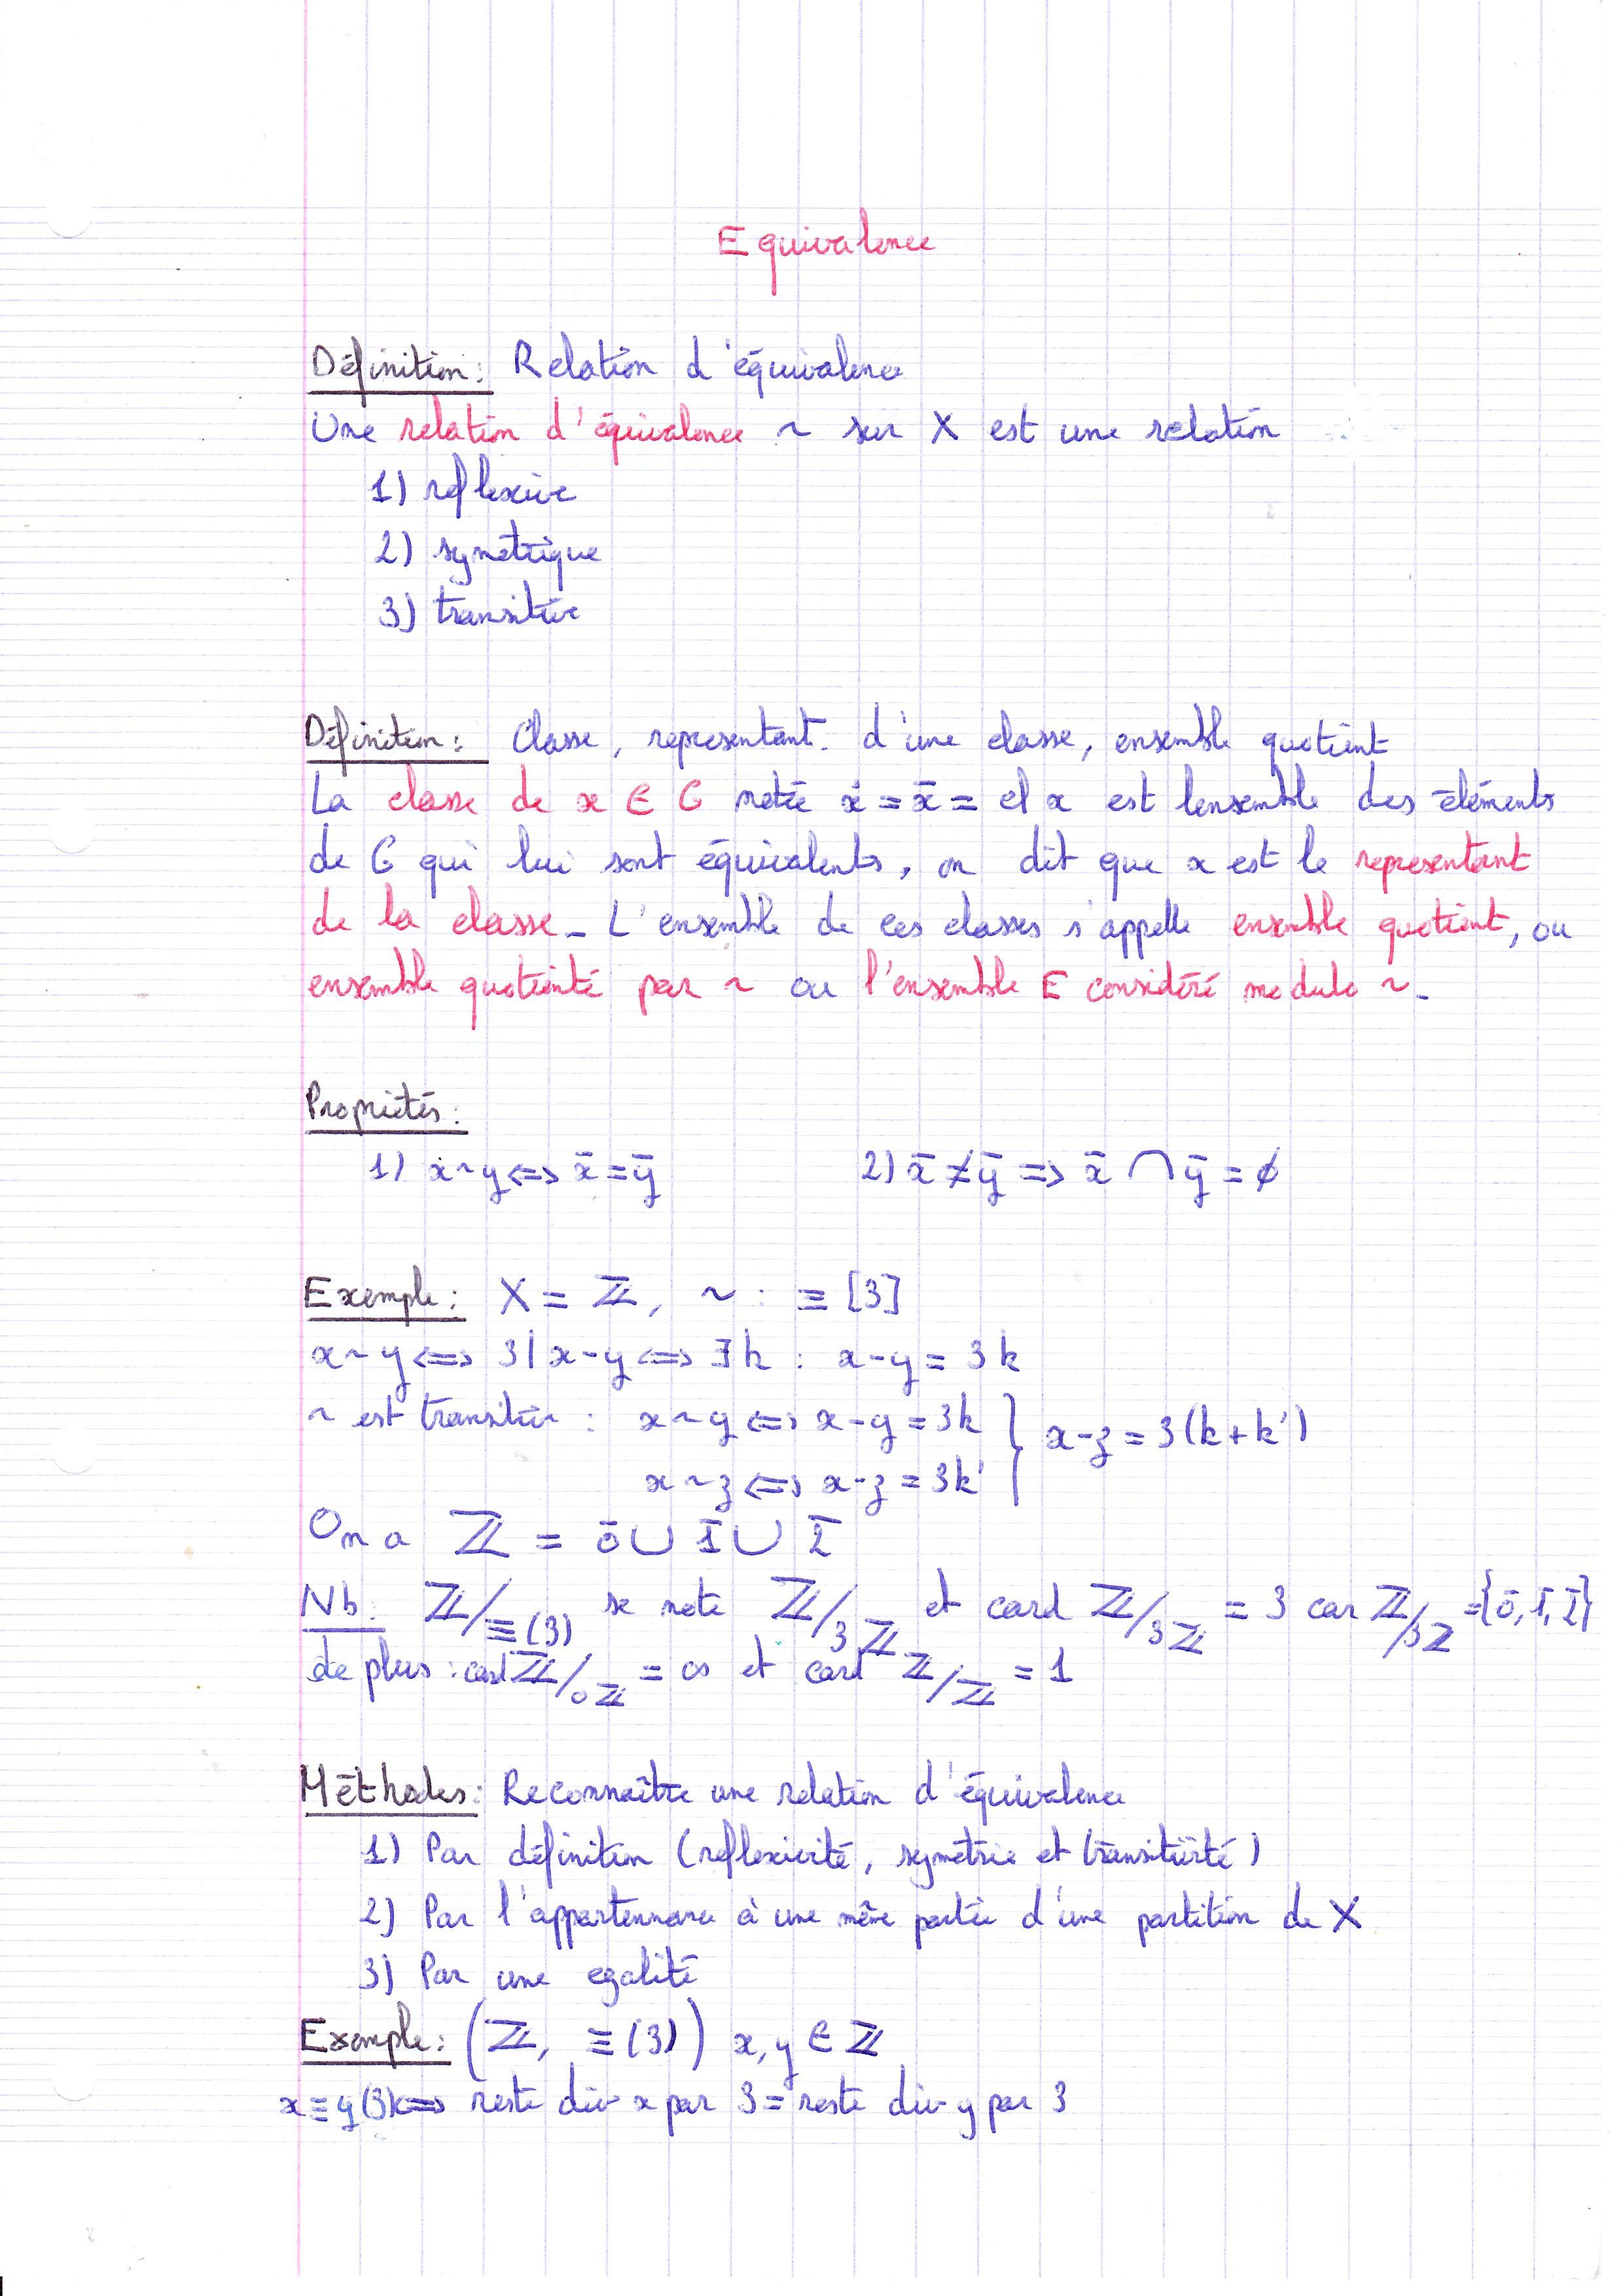 Equivalence
Définition: Relation d'équivalence
Une relation d'équivalence ~ sur X est une relation
1) reflexive
2) symétrique
3) transitive
Définition: Classe, representant d'une classe, ensemble quotient
La classe de x ∈ G notée ẋ = x̄ = cl x est l'ensemble des éléments
de G qui lui sont équivalents, on dit que x est le representant
de la classe. L'ensemble de ces classes s'appelle ensemble quotient, ou
ensemble quotienté par ~ ou l'ensemble E considéré modulo ~.
Propriétés:
1) x~y ⟺ x̄ = ȳ 2) x̄ ≠ ȳ ⟹ x̄ ∩ ȳ = ∅
Exemple: X = ℤ, ~ : ≡ [3]
x~y ⟺ 3|x-y ⟺ ∃k : x-y = 3k
~ est transitive : x~y ⟺ x-y = 3k } x-z = 3(k+k')
x~z ⟺ x-z = 3k'
On a ℤ = 0̄ ∪ 1̄ ∪ 2̄
Nb: ℤ/≡(3) se note ℤ/3ℤ et card ℤ/3ℤ = 3 car ℤ/3ℤ = {0̄, 1̄, 2̄}
de plus : card ℤ/0ℤ = ∞ et card ℤ/ℤ = 1
Méthodes: Reconnaître une relation d'équivalence
1) Par définition (reflexivité, symétrie et transitivité)
2) Par l'appartennance à une même partie d'une partition de X
3) Par une egalité
Exemple: (ℤ, ≡(3)) x,y ∈ ℤ
x ≡ y (3) ⟺ reste div x par 3 = reste div y par 3